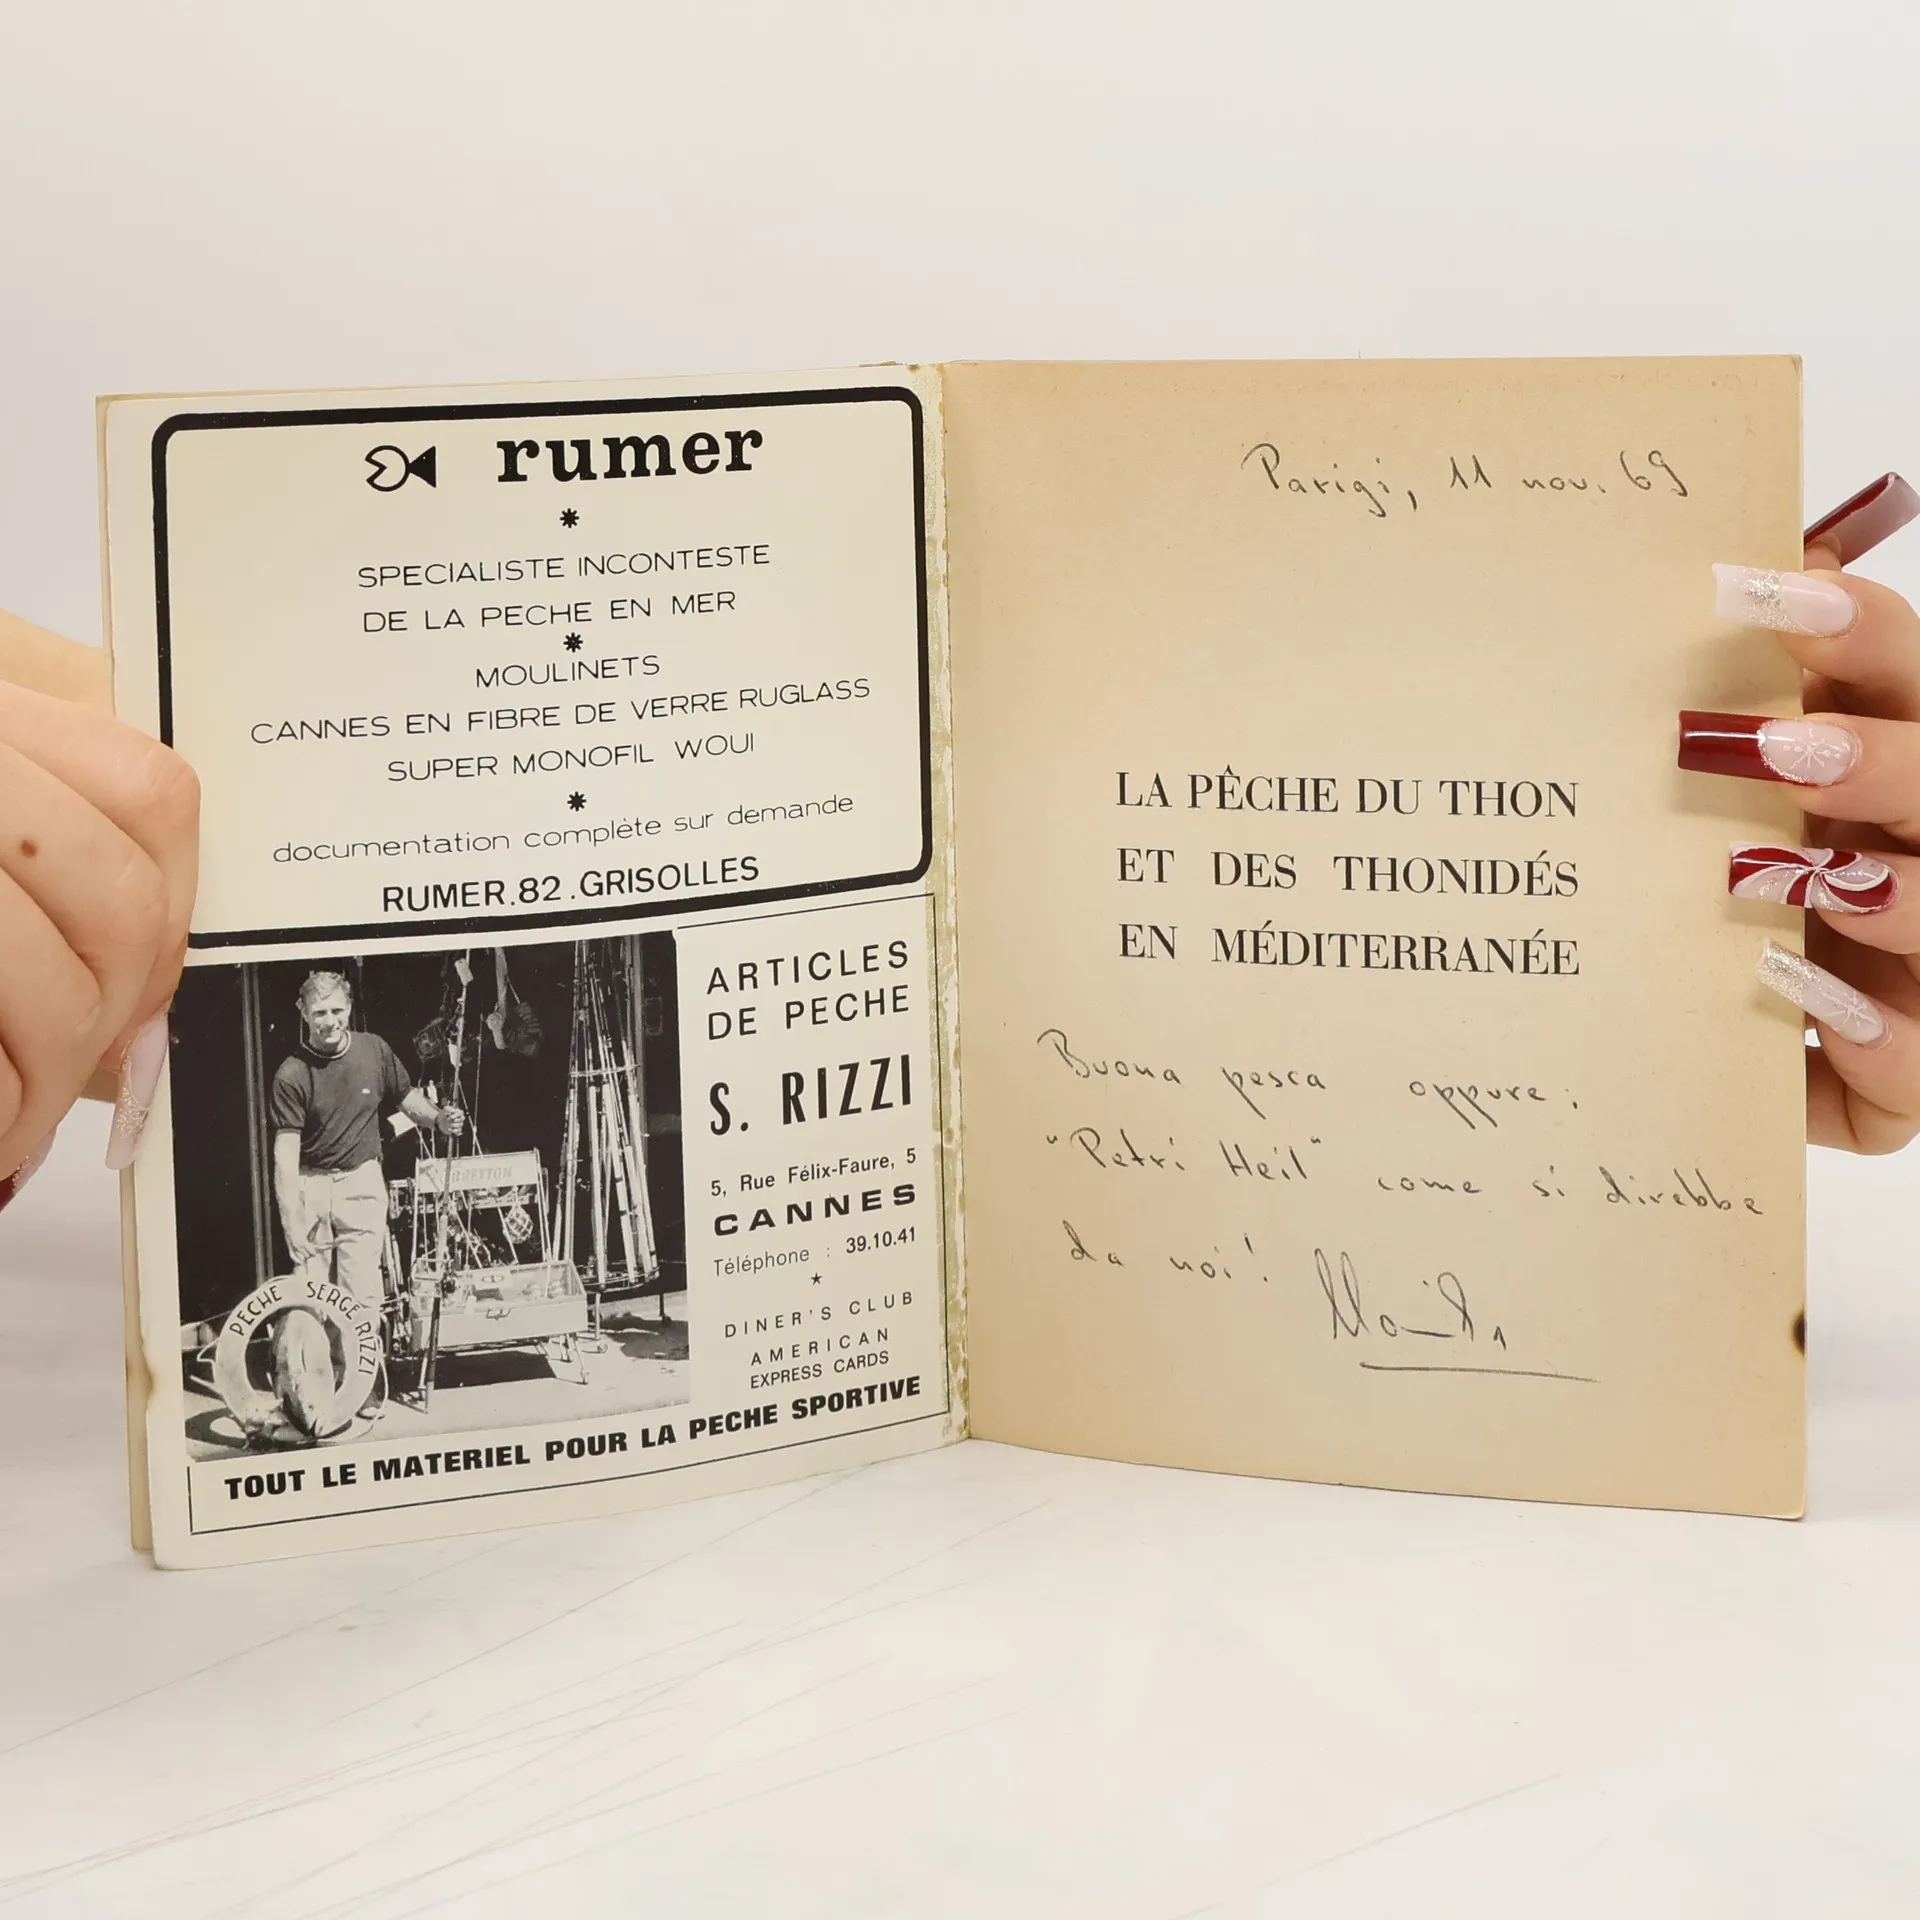 rumer
SPECIALISTE INCONTESTE
DE LA PECHE EN MER
MOULINETS
CANNES EN FIBRE DE VERRE RUGLASS
SUPER MONOFIL WOUI
documentation complète sur demande
RUMER.82.GRISOLLES
PECHE SERGE RIZZI
ARTICLES
DE PECHE
S. RIZZI
5, Rue Félix-Faure, 5
CANNES
Téléphone : 39.10.41
DINER'S CLUB
AMERICAN
EXPRESS CARDS
TOUT LE MATERIEL POUR LA PECHE SPORTIVE
Parigi, 11 nov. 69
LA PÊCHE DU THON
ET DES THONIDÉS
EN MÉDITERRANÉE
Buona pesca oppure:
"Petri Heil" come si direbbe
da noi!